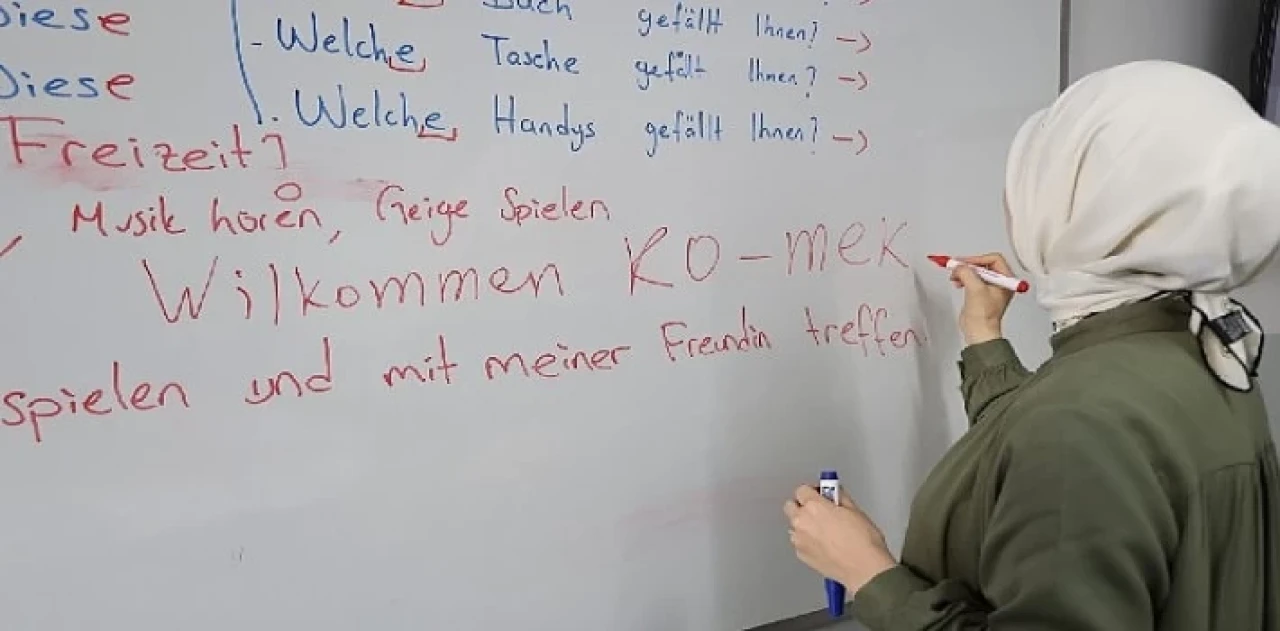 Diese Buch gefällt Ihnen? ->
- Welche Tasche gefält Ihnen? ->
Diese
. Welche Handys gefällt Ihnen? ->
Freizeit]
Musik hören, Geige Spielen
Wilkommen KO-mek
spielen und mit meiner Freundin treffen.